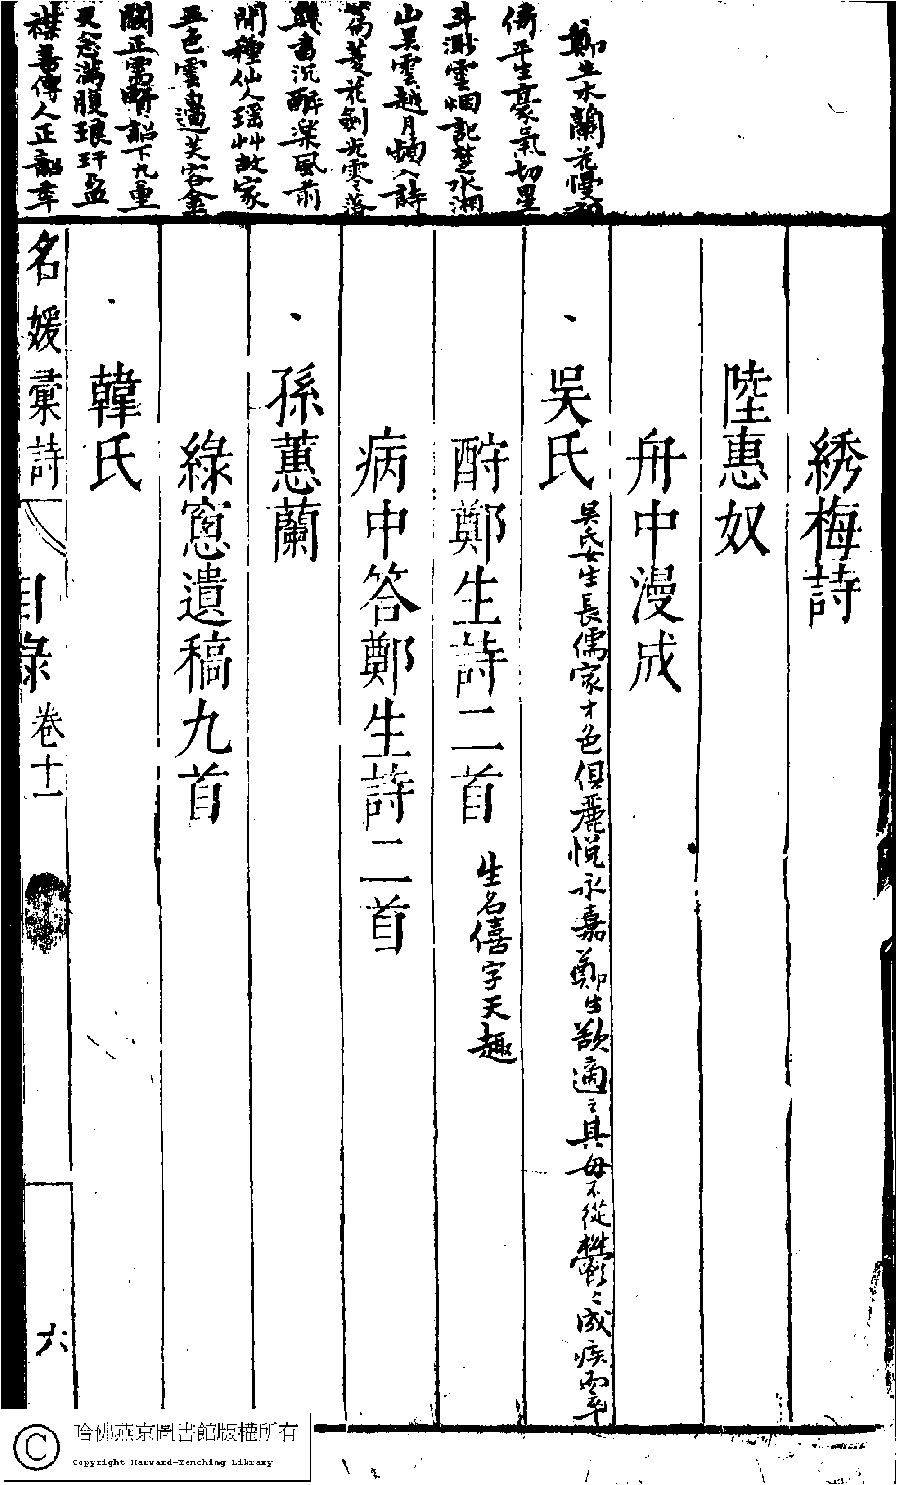 鄭生木蘭花慢詞
倚平生豪氣切星
斗渺雲烟記楚水湘
山吳雲越月頻入詩
篇菱花劍光零落
幾番沉醉樂風前
閒種仙人瑶艸故家
五色雲邊芙容金
闕正需賢詔下九重
天念滿腹琅玕盈
襟書傳人正韶年
綉梅詩
陸惠奴
舟中漫成
吳氏 吳氏女生長儒家才色俱麗悅永嘉鄭生欲適之其母不從鬱々成疾而卒
酧鄭生詩二首 生名僖字天趣
病中答鄭生詩二首
孫蕙蘭
綠窻遺稿九首
韓氏
名媛彙詩 目錄 卷十一 六
哈佛燕京圖書館版權所有
Copyright Harvard-Yenching Library